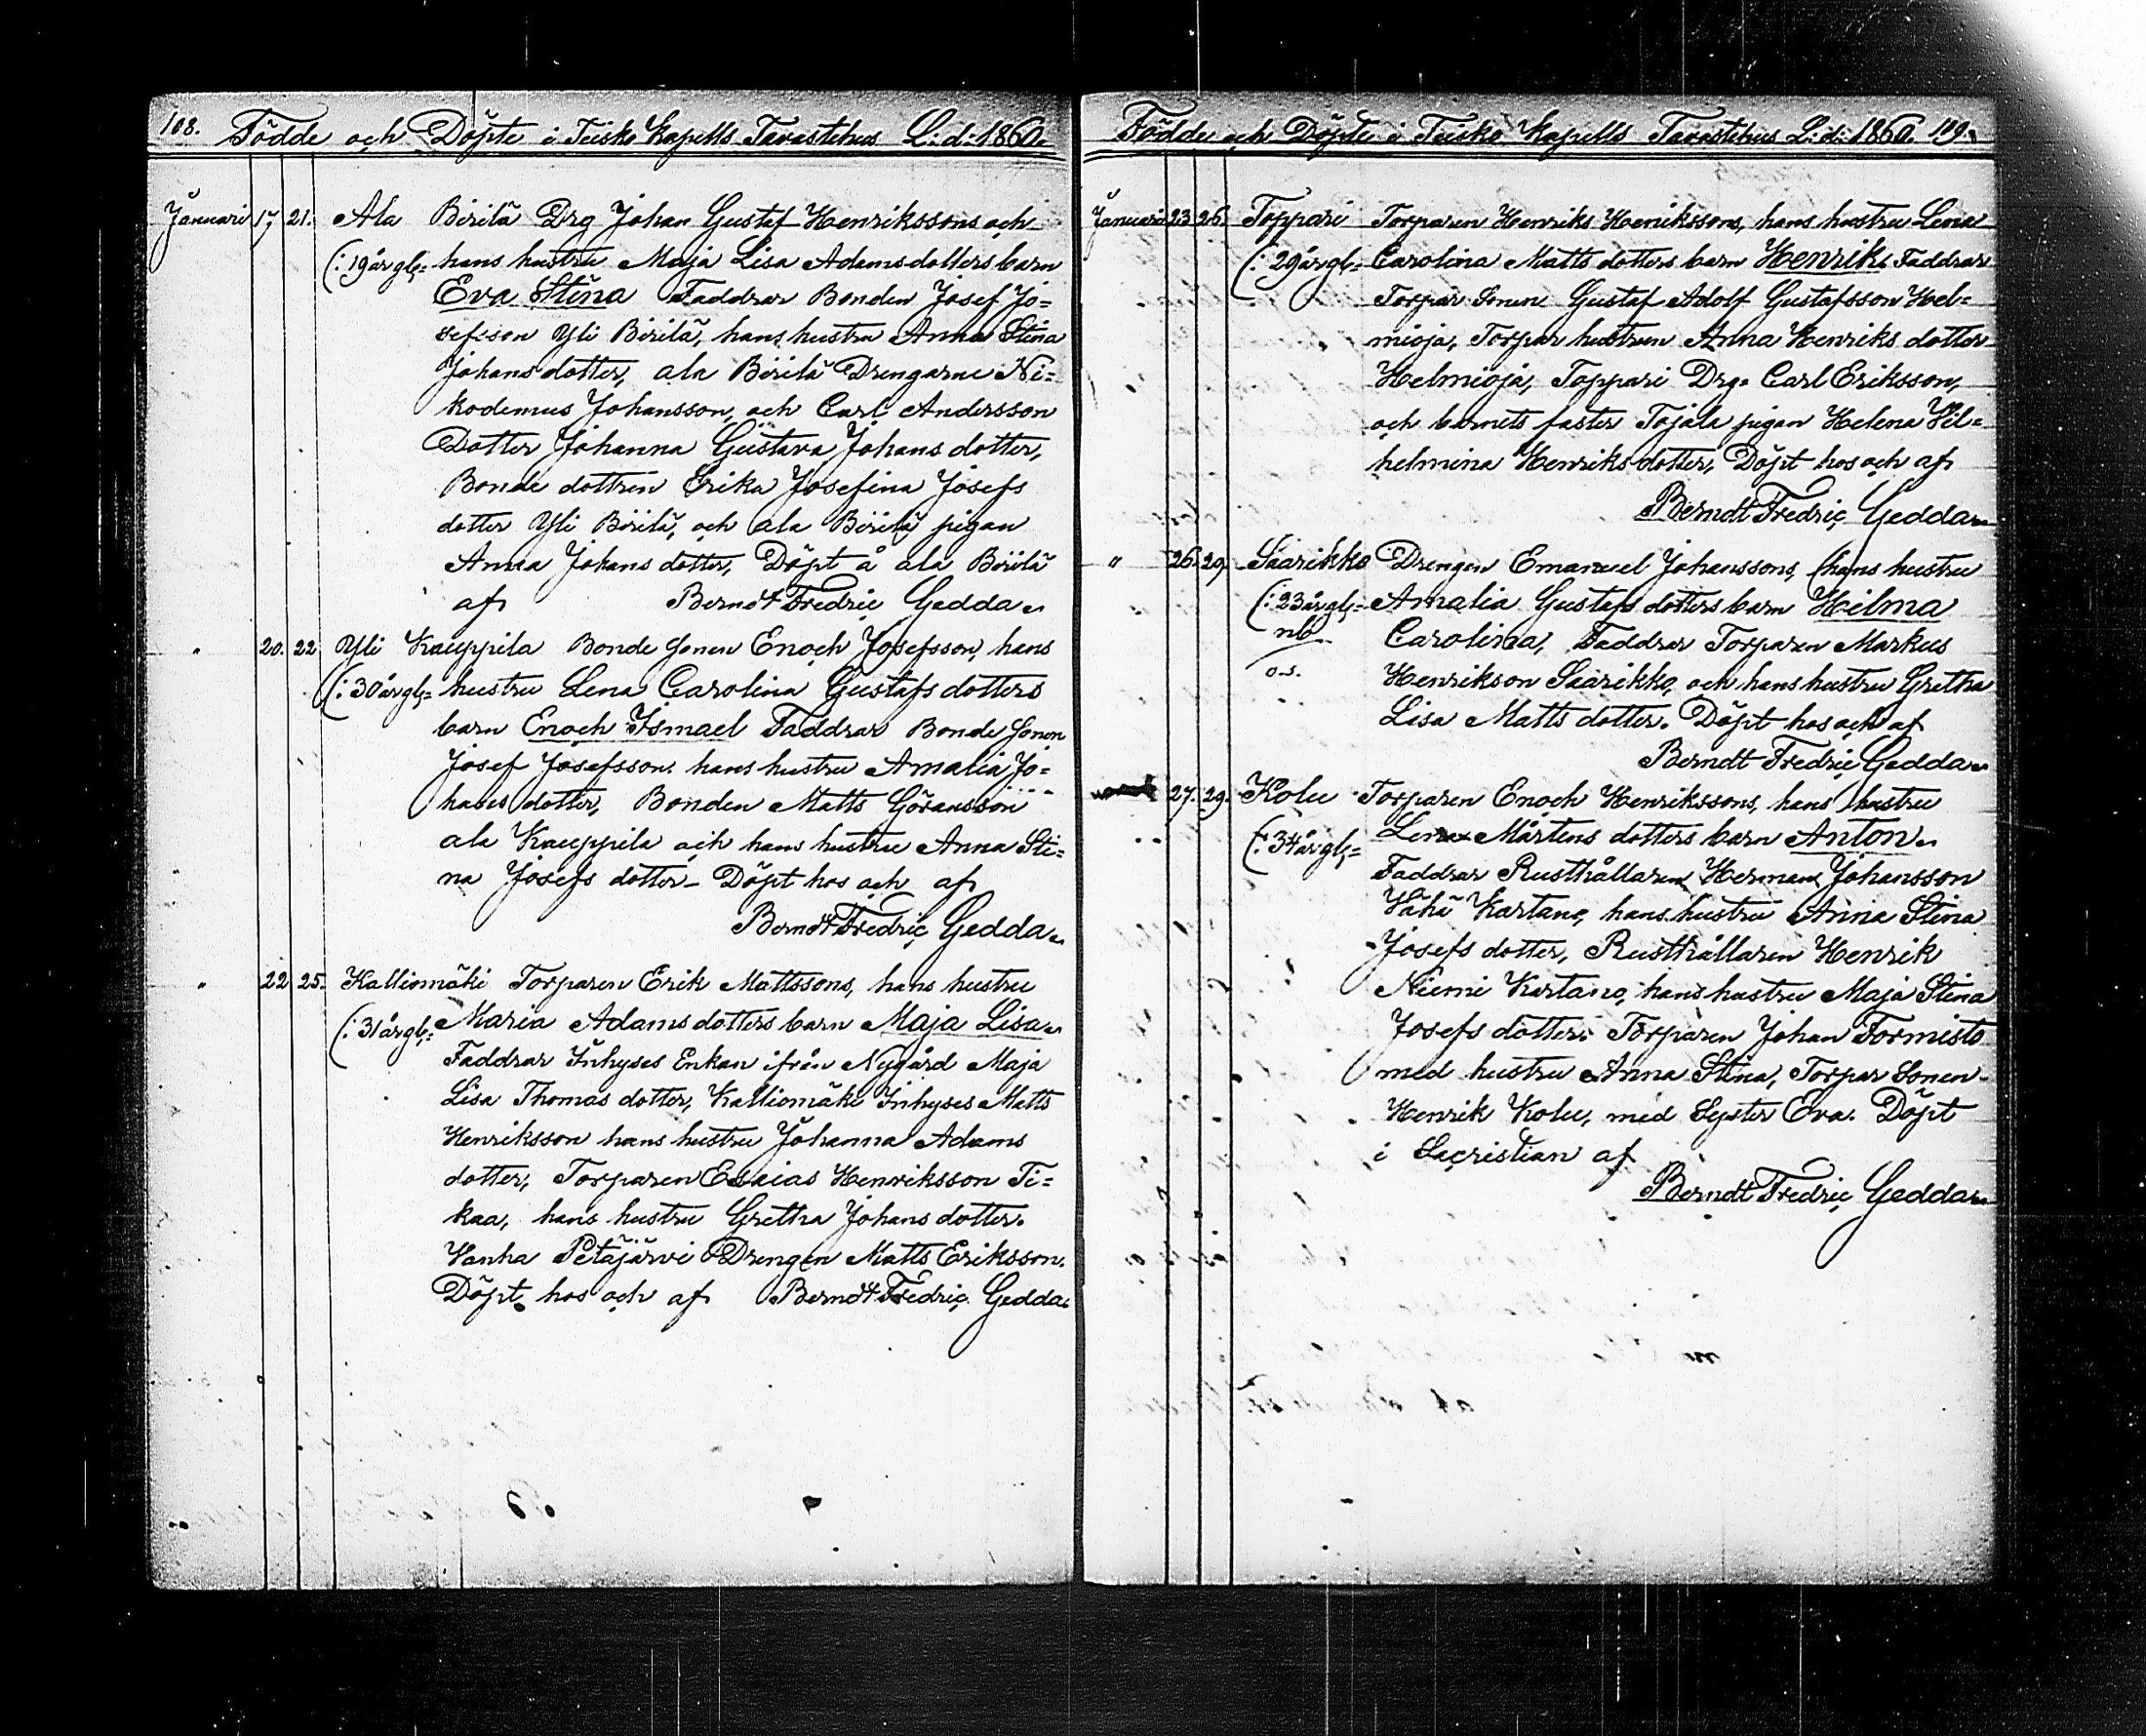 108. Födde och Döpte i Teisko Kapells Tavastehus L:d: 1860.
Januari 17 21. Ala Birilä Drg Johan Gustaf Henrikssons och
(: 19 år gl= hans hustru Maja Lisa Adamsdotters barn
Eva Stina Faddrar Bonden Josef Jo=
sefsson Yli Birilä, hans hustru Anna Stina
Johansdotter, ala Birilä Drengarne Ni=
kodemus Johansson, och Carl Andersson
Dotter Johanna Gustava Johans dotter,
Bonde dottren Erika Josefina Josefs
dotter Yli Birilä, och ala Birilä pigan
Anna Johans dotter, Döpt å ala Birilä
af Berndt Fredric Gedda.
" 20. 22 Yli Kauppila Bonde Sonen Enoch Josefsson, hans
(: 30 år gl= hustru Lena Carolina Gustafs dotters
barn Enoch Ismael Faddrar Bonde Sonen
Josef Josefsson. hans hustru Amalia Jo=
hans dotter, Bonden Matts Göransson
ala Kauppila och hans hustru Anna Sti=
na Josefs dotter - Döpt hos och af
Berndt Fredric Gedda.
" 22 25. Kalliomäki Torparen Erik Mattssons, hans hustru
(: 31 år gl= Maria Adams dotters barn Maja Lisa.
Faddrar Inhyses Enkan ifrån Nygård Maja
Lisa Thomas dotter, Kalliomäki Inhyses Matts
Henriksson hans hustru Johanna Adams
dotter, Torparen Esaias Henriksson Ti=
kaa, hans hustru Gretha Johans dotter.
Vanha Petäjärvi Drengen Matts Eriksson.
Döpt hos och af Berndt Fredric Gedda.
Födde och Döpte i Teisko Kapells Tavastehus L:d: 1860. 109.
Januari 23 26. Toppari Torparen Henriks Henrikssons, hans hustru Lena
(: 29 år gl= Carolina Matts dotters barn Henrik. Faddrar
Torpar Sonen Gustaf Adolf Gustafsson Hel=
mioja, Torpar hustrun Anna Henriks dotter
Helmioja, Toppari Drg= Carl Eriksson,
och barnets faster Tojala pigan Helena Vil=
helmina Henriks dotter, Döpt hos och af
Berndt Fredric Gedda.
" 26. 29. Saarikko Drengen Emanuel Johanssons, hans hustru
(: 23 år gl= Amalia Gustafs dotters barn Hilma
nb Carolina, Faddrar Torparen Markus
o.s. Henrikson Saarikko, och hans hustru Gretha
Lisa Matts dotter. Döpt hos och af
Berndt Fredric Gedda.
27. 29. Kolu Torparen Enoch Henrikssons, hans hustru
(: 34 år gl= Lena Mårtens dotters barn Anton.
Faddrar Rusthållaren Herman Johansson
Vähä Kartano, hans hustru Anna Stina
Josefs dotter, Rusthållaren Henrik
Niemi Kartano, hans hustru Maja Stina
Josefs dotter. Torparen Johan Formisto
med hustru Anna Stina, Torpar Sonen
Henrik Kolu, med Syster Eva. Döpt
i Sacristian af
Berndt Fredric Gedda.